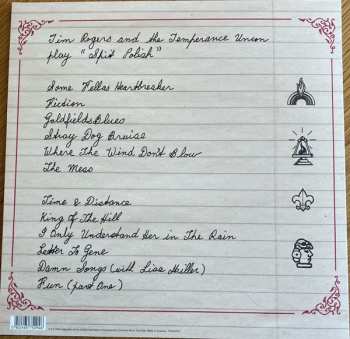 Tim Rogers and the Temperance Union
play "Spit Polish"
Some Fellas Heartbreaker
Fiction
Goldfields Blues
Stray Dog Bruise
Where The Wind Don't Blow
The Mess
Time & Distance
King Of The Hill
I Only Understand Her in The Rain
Letter To Gene
Damn Songs (with Lisa Miller)
Run (part One)